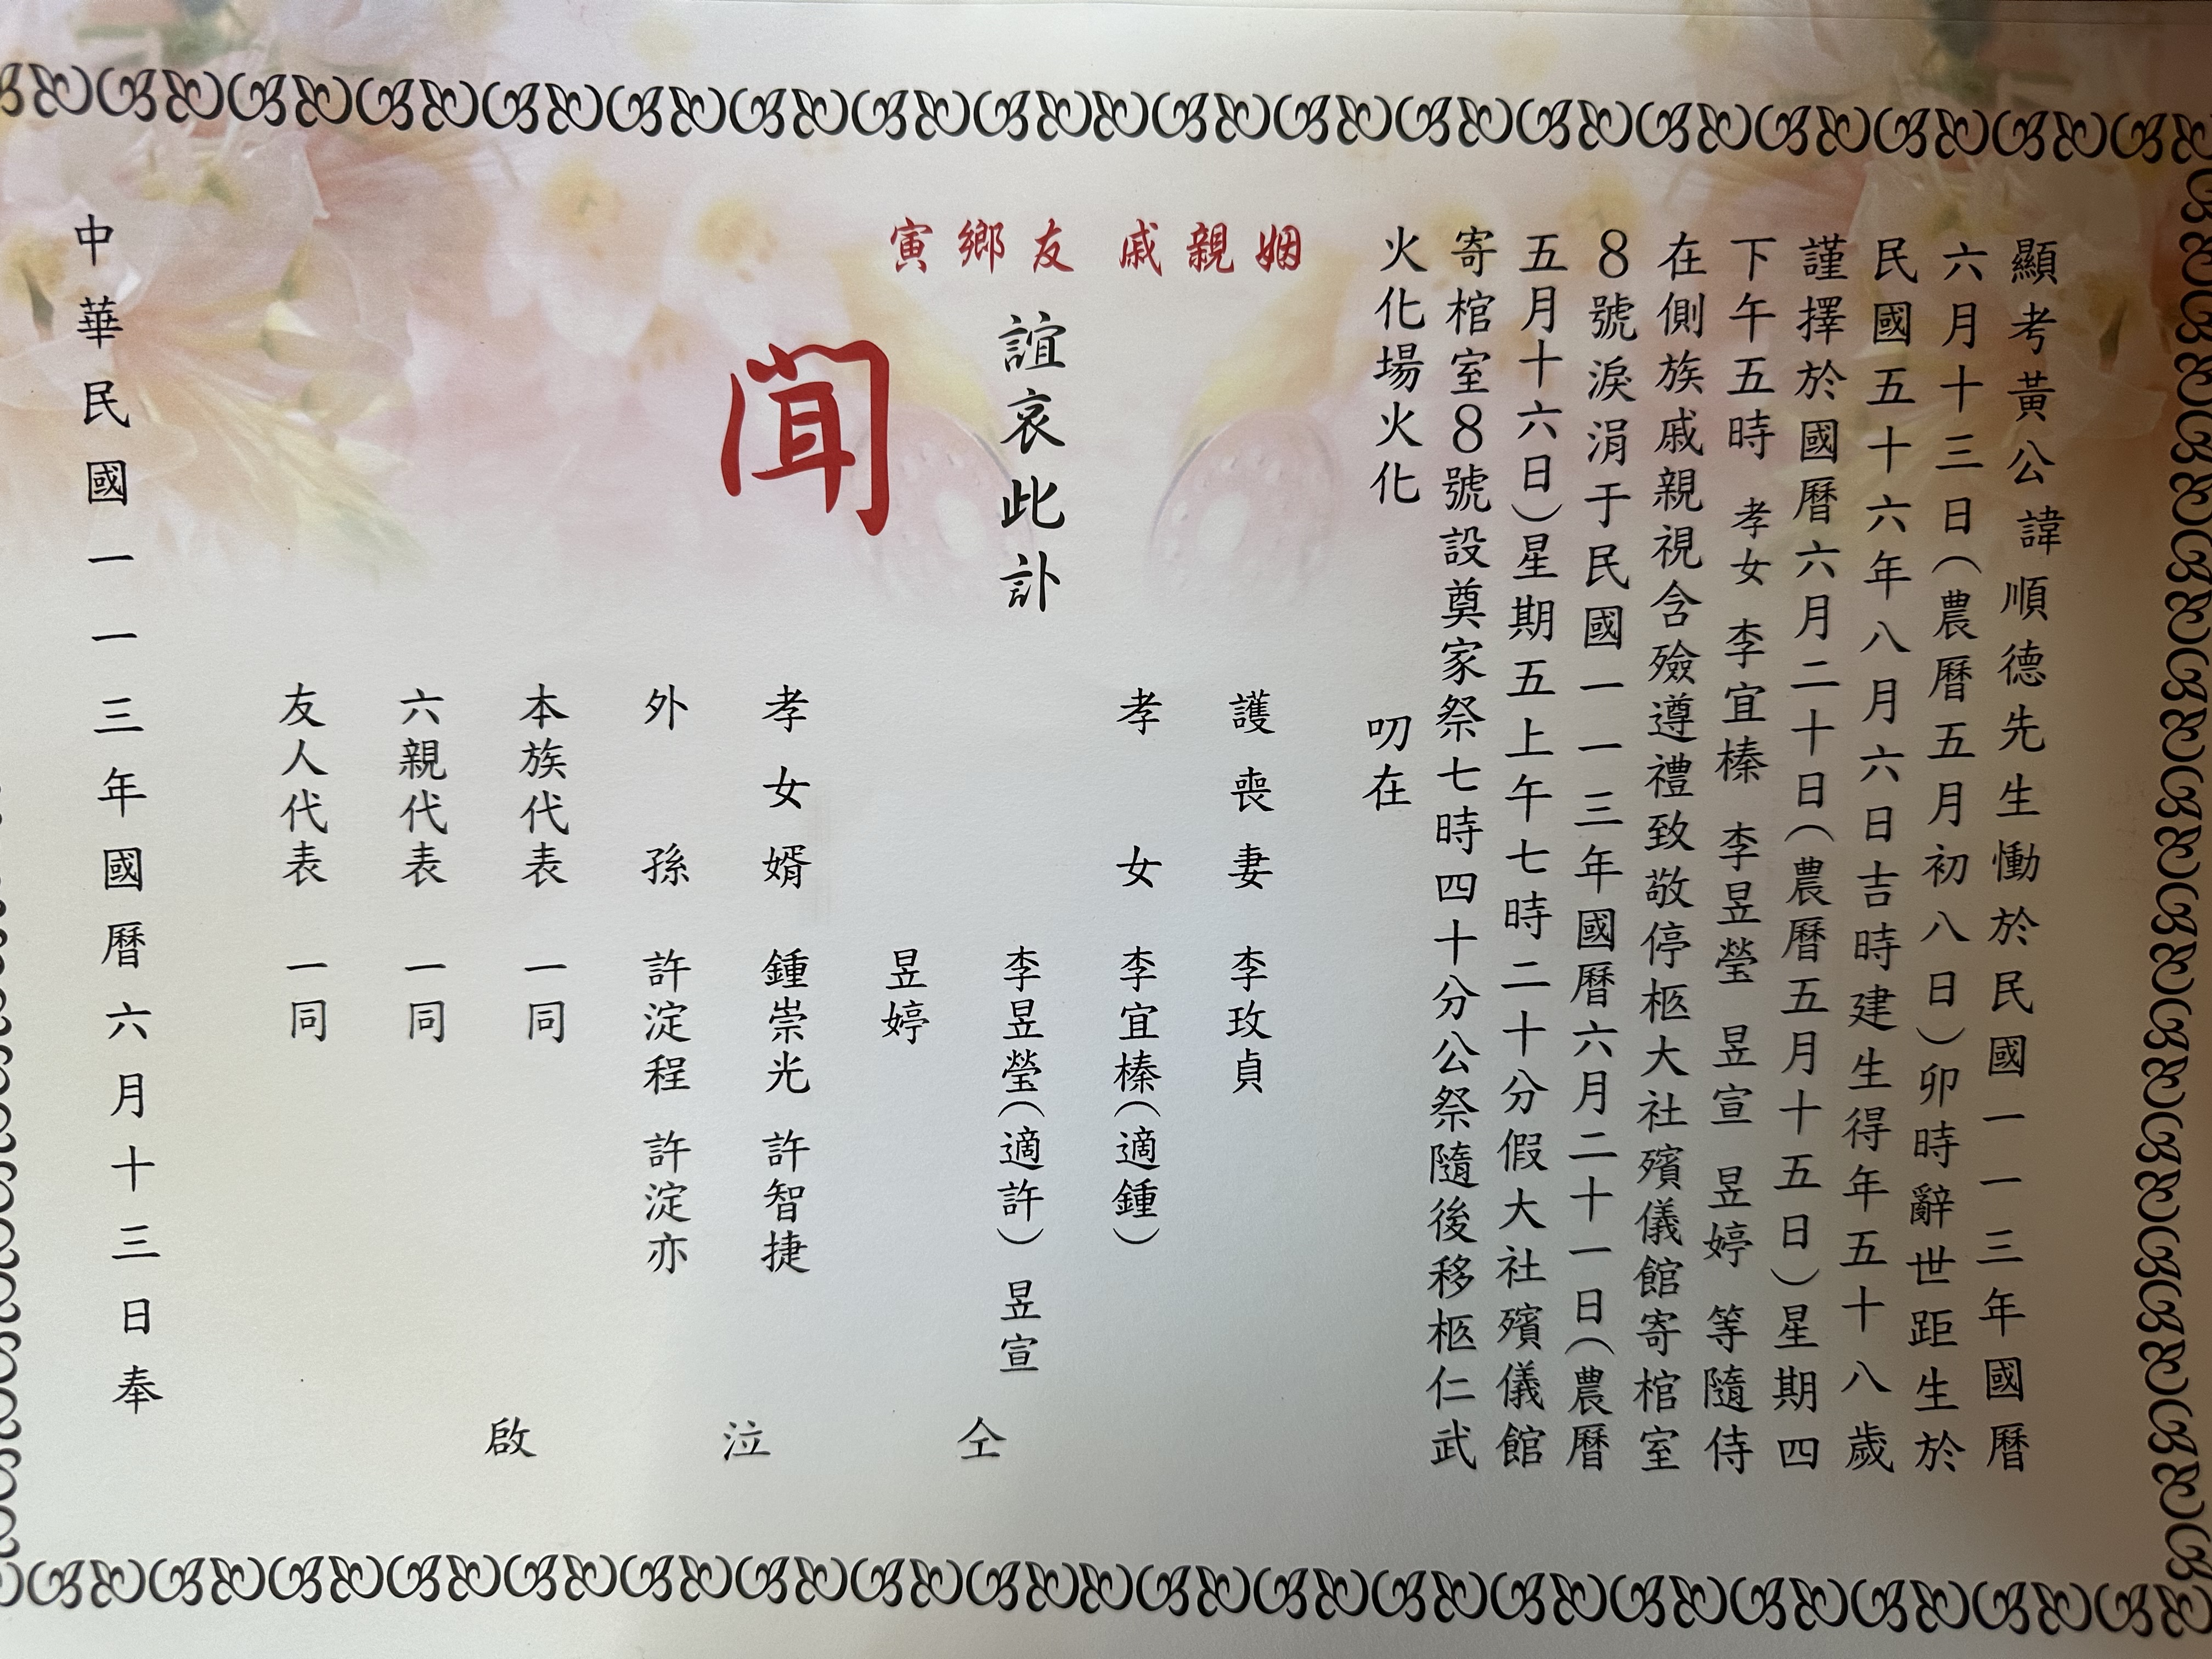 顯考黃公諱順德先生慟於民國一一三年國曆
六月十三日(農曆五月初八日)卯時辭世距生於
民國五十六年八月六日吉時建生得年五十八歲
謹擇於國曆六月二十日(農曆五月十五日)星期四
下午五時 孝女 李宜榛 李昱瑩 昱宣 昱婷 等隨侍
在側族戚親視含殮遵禮致敬停柩大社殯儀館寄棺室
8號淚涓于民國一一三年國曆六月二十一日(農曆
五月十六日)星期五上午七時二十分假大社殯儀館
寄棺室8號設奠家祭七時四十分公祭隨後移柩仁武
火化場火化
叨在
姻親戚友鄉寅
誼哀此訃
聞
護喪妻 李玫貞
孝女 李宜榛(適鍾)
李昱瑩(適許) 昱宣
昱婷
孝女婿 鍾崇光 許智捷
外孫 許淀程 許淀亦
本族代表 一同
六親代表 一同
友人代表 一同
仝泣啟
中華民國一一三年國曆六月十三日奉